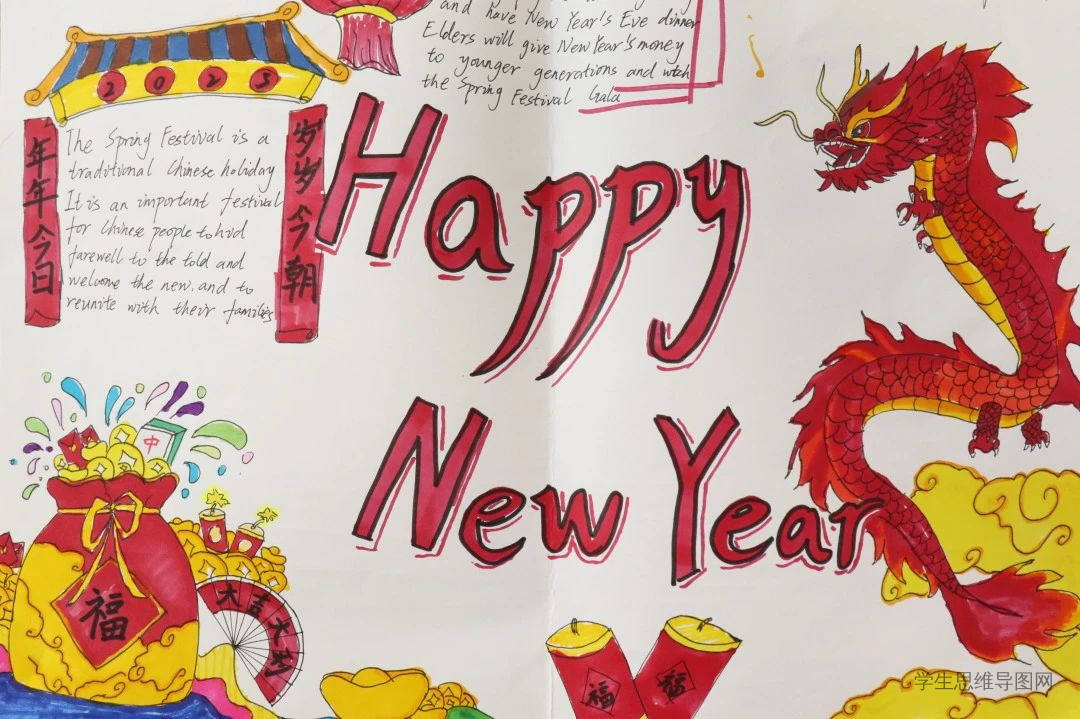 and have New Year's Eve dinner
Elders will give New Year's money
to younger generations and wtch
the Spring Festival Gala
2023
年年今日
岁岁今朝
The Spring Festival is a
traditional Chinese holiday
It is an important festival
for Chinese people to hid
farewell to the told and
welcome the new. and to
reunite with their families
Happy
New Year
中
福
大吉大
福
福
学生思维导图网